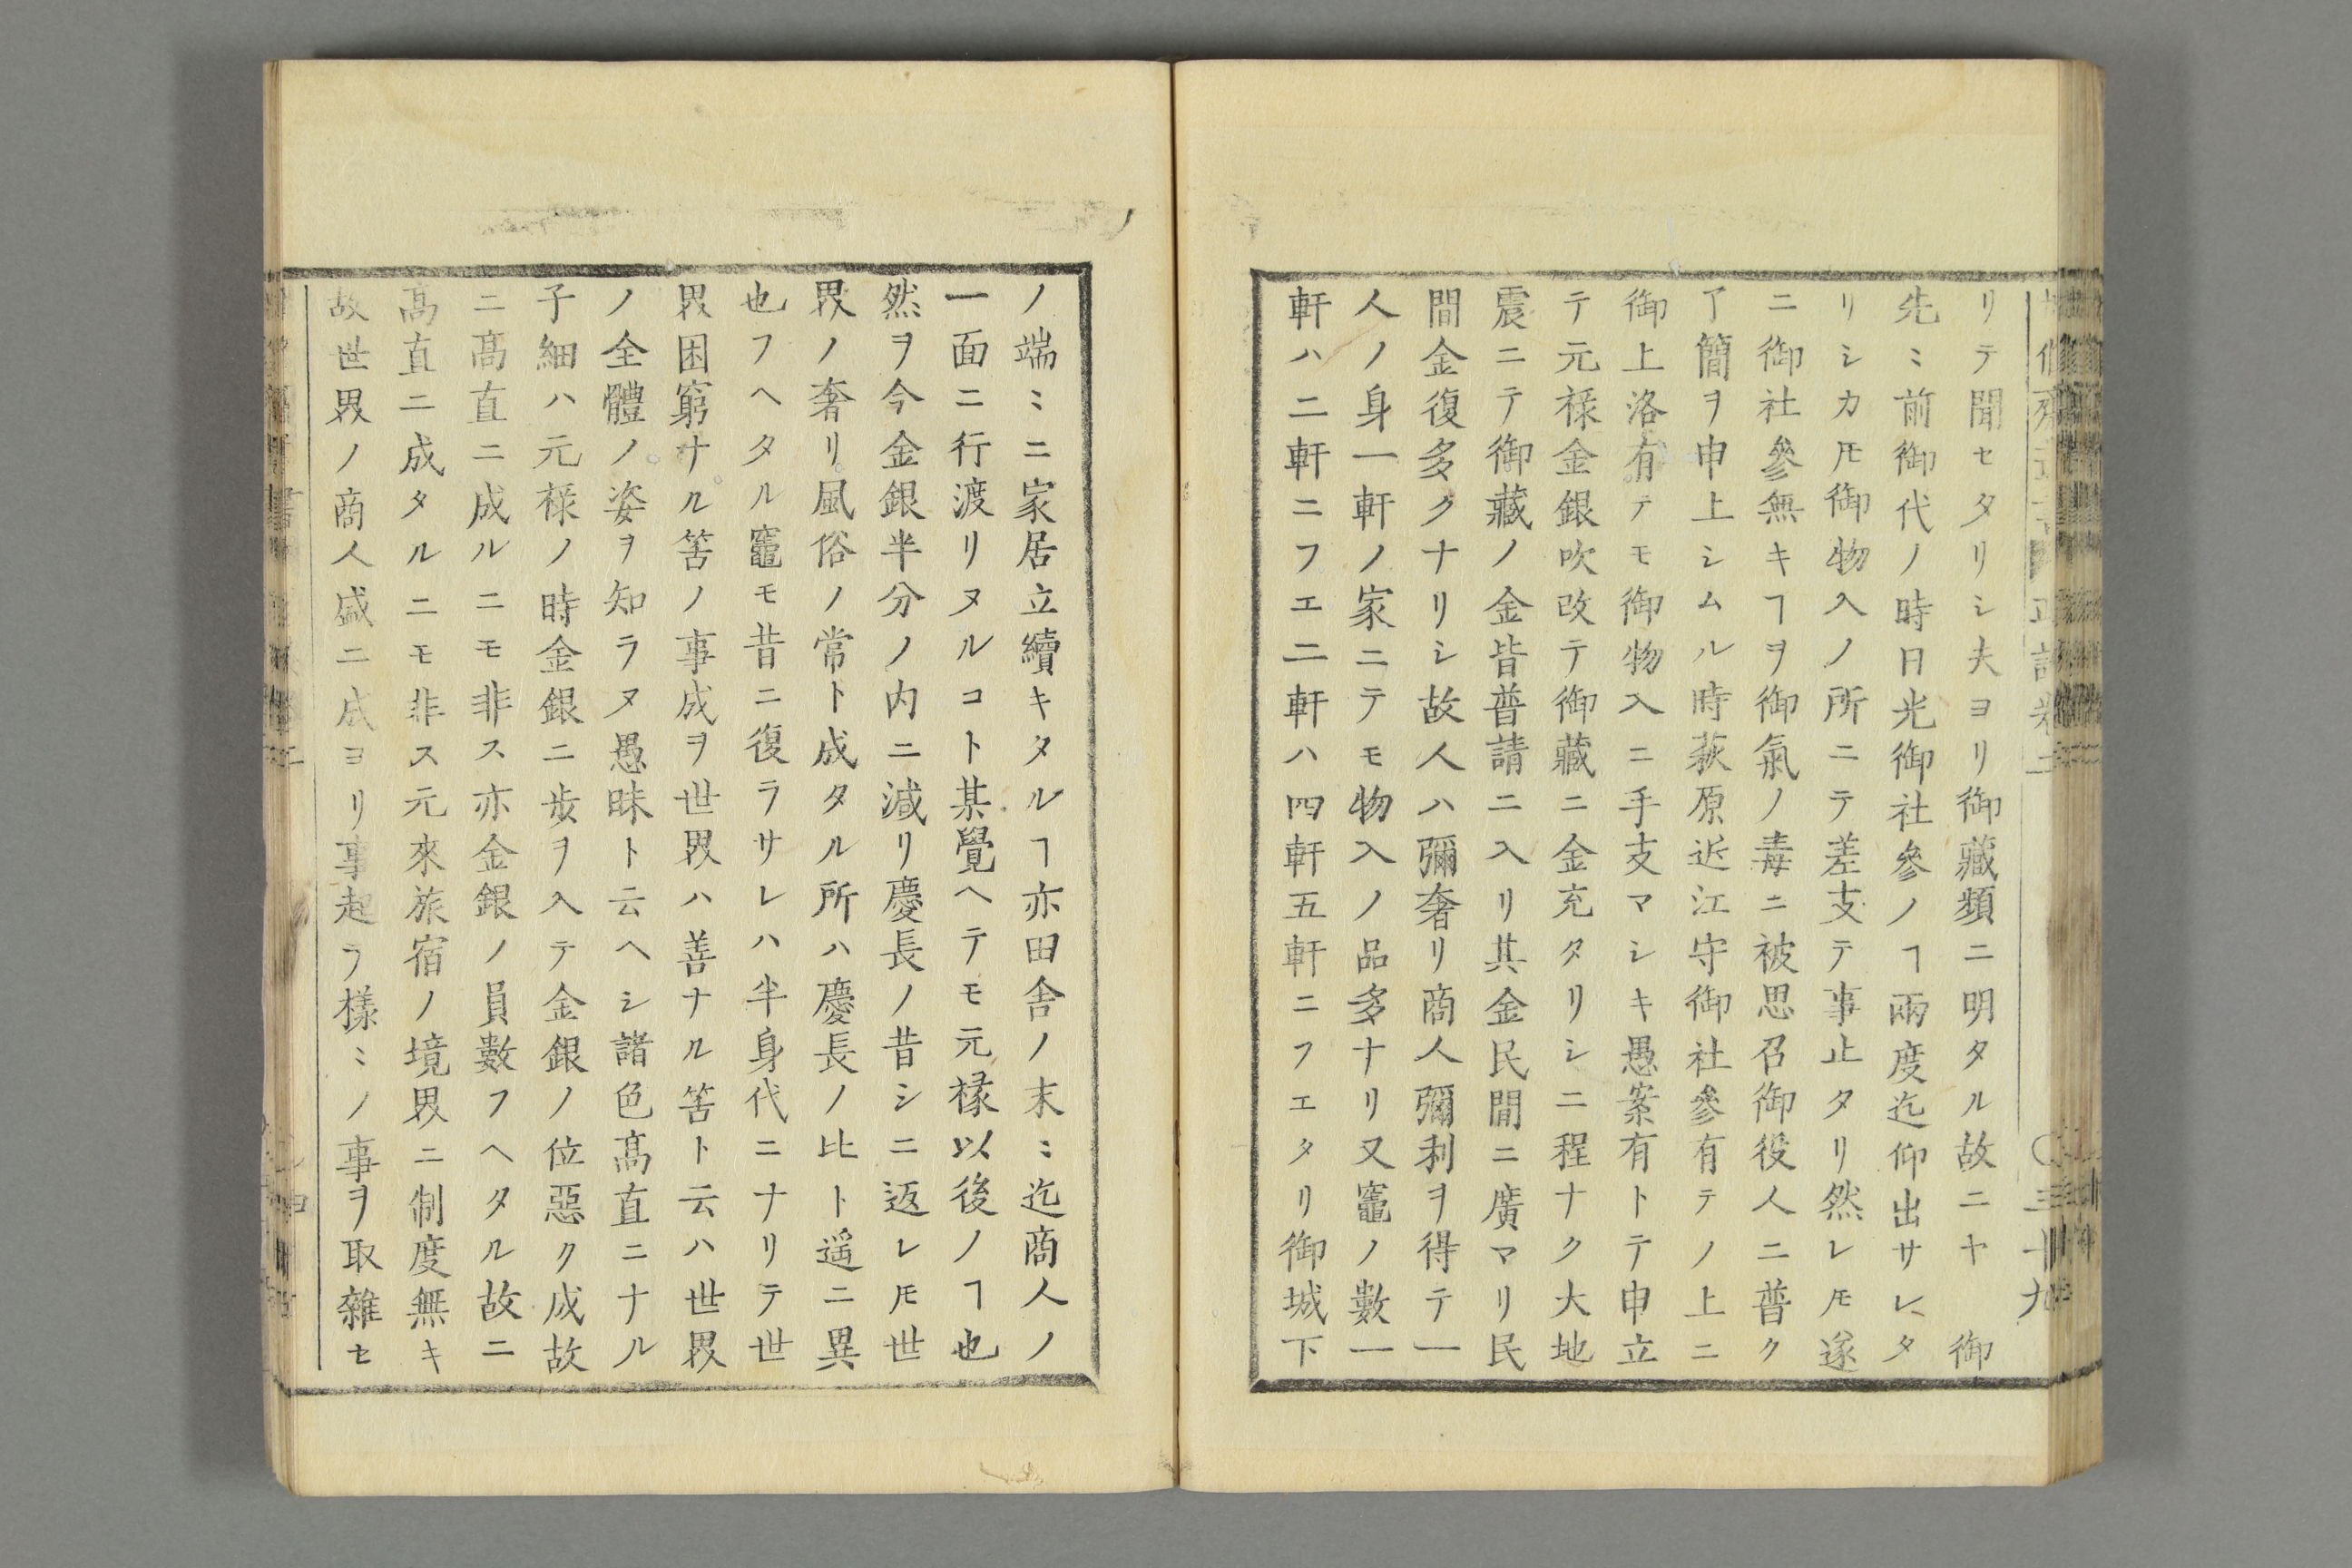 リテ聞セタリシ夫ヨリ御藏頻ニ明タル故ニヤ 御
先ミ前御代ノ時日光御社參ノヿ兩度迄仰出サレタ
リシカ𪜈御物入ノ所ニテ差支テ事止タリ然レ𪜈遂
ニ御社參無キヿヲ御氣ノ毒ニ被思召御役人ニ普ク
了簡ヲ申上シムル時萩原近江守御社參有テノ上ニ
御上洛有テモ御物入ニ手支マシキ愚案有トテ申立
テ元禄金銀吹改テ御藏ニ金充タリシニ程ナク大地
震ニテ御藏ノ金皆普請ニ入リ其金民間ニ廣マリ民
間金復多クナリシ故人ハ彌奢リ商人彌利ヲ得テ一
人ノ身一軒ノ家ニテモ物入ノ品多ナリ又竈ノ數一
軒ハ二軒ニフエ二軒ハ四軒五軒ニフエタリ御城下
ノ端ミニ家居立續キタルヿ亦田舎ノ末ミ迄商人ノ
一面ニ行渡リヌルコト某覺ヘテモ元禄以後ノヿ也
然ヲ今金銀半分ノ内ニ減リ慶長ノ昔シニ返レ𪜈世
界ノ奢リ風俗ノ常ト成タル所ハ慶長ノ比ト遥ニ異
也フヘタル竈モ昔ニ復ラサレハ半身代ニナリテ世
界困窮ナル筈ノ事成ヲ世界ハ善ナル筈ト云ハ世界
ノ全體ノ姿ヲ知ラヌ愚昧ト云ヘシ諸色髙直ニナル
子細ハ元禄ノ時金銀ニ歩ヲ入テ金銀ノ位惡ク成故
ニ髙直ニ成ルニモ非ス亦金銀ノ員數フヘタル故ニ
髙直ニ成タルニモ非ス元來旅宿ノ境界ニ制度無キ
故世界ノ商人盛ニ成ヨリ事起ラ様ミノ事ヲ取雜セ